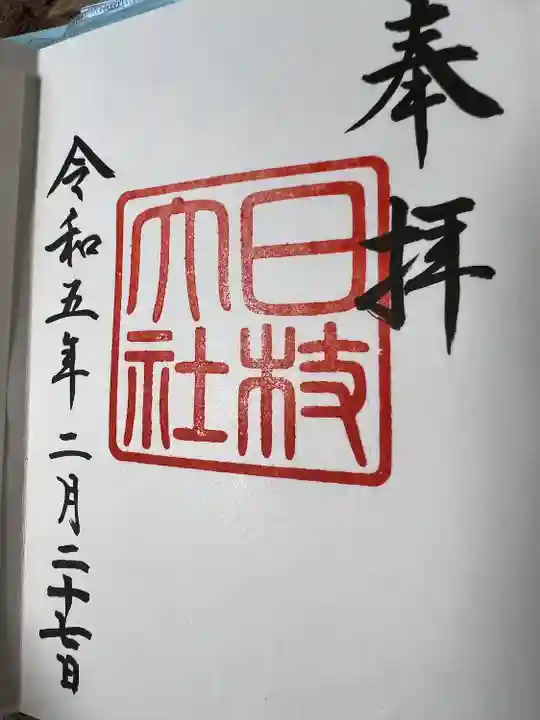 奉拝
日枝
大社
令和五年二月二十七日